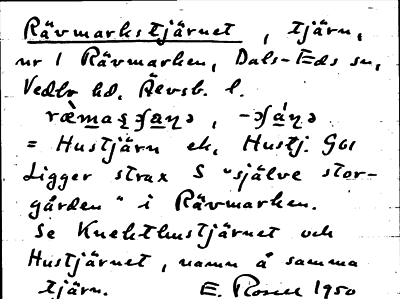 Rävmarkstjärnet, tjärn,
nr 1 Rävmarken, Dals-Eds sn,
Vedbo hd, Älvsb. l.
= Hustjärn ek, Hustj. GS
Ligger strax S "själve stor-
gården" i Rävmarken.
Se Knekthustjärnet och
Hustjärnet, namn å samma
tjärn. E. Rosell 1950